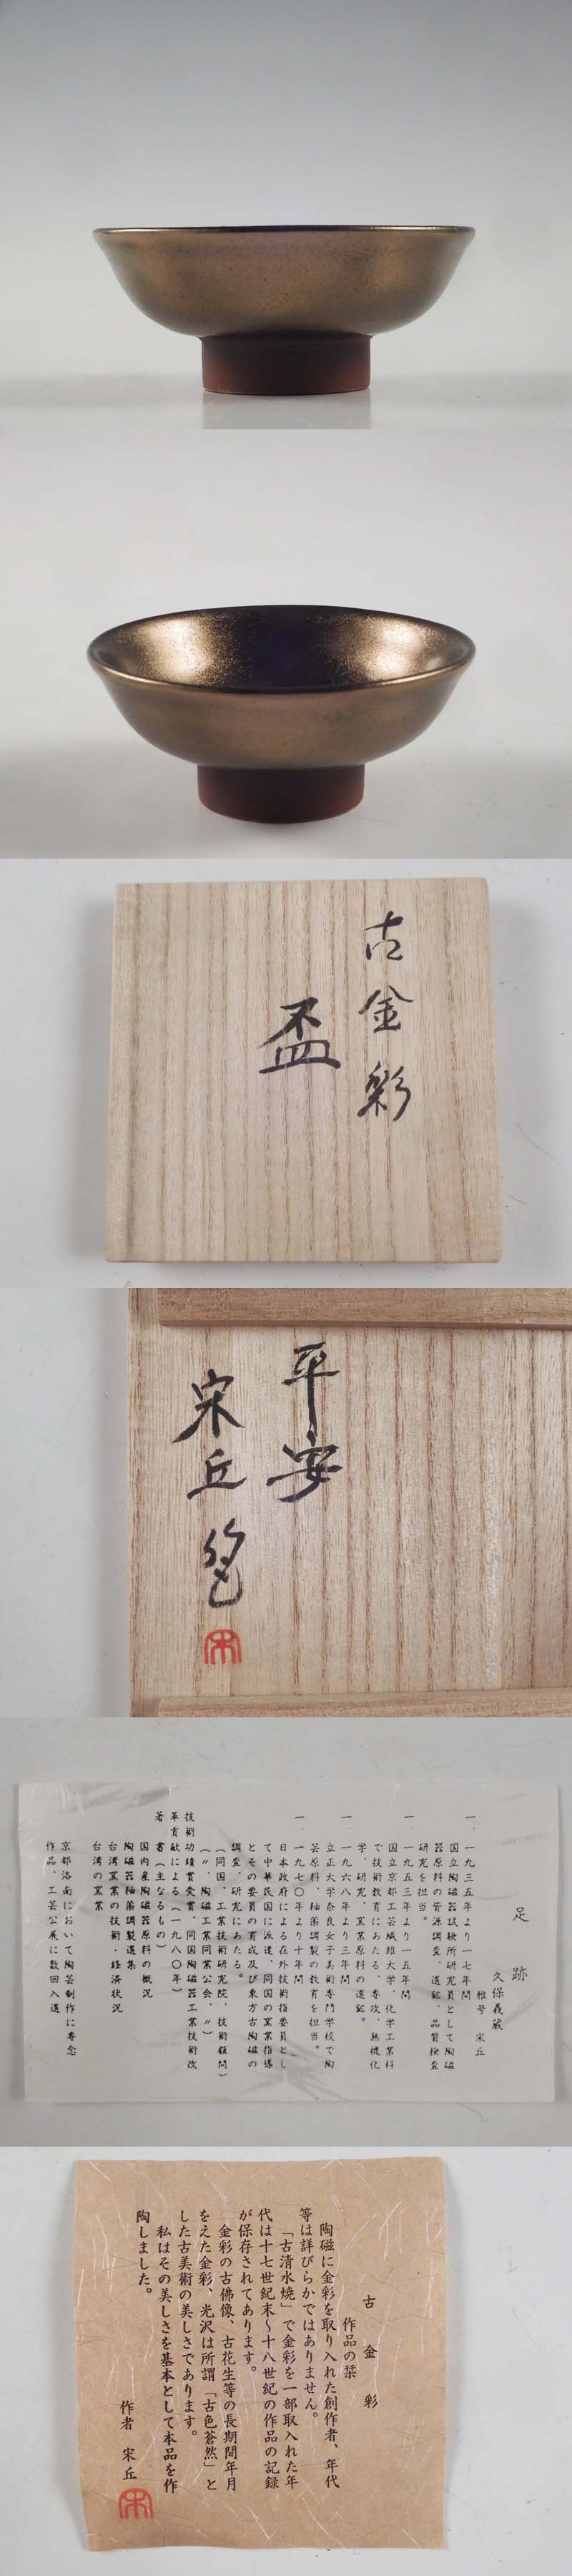 古金彩
盃
平安
宋丘
宋
足跡
久保義蔵
雅号 宋丘
一、一九三五年より一七年間
国立陶磁器試験所研究員として陶磁
器原料の資源調査、選鉱、品質検査
研究を担当。
一、一九五三年より一五年間
国立京都工芸繊維大学、化学工業科
で技術教育にあたる、専攻、無機化
学、研究、窯業原料の選鉱。
一、一九六八年より三年間
立正大学奈良女子美術専門学校で陶
芸原料、釉薬調製の教育を担当。
一、一九七〇年より十年間
日本政府による在外技術指委員とし
て中華民国に派遣、同国の窯業指導
とその要員の育成及び東方古陶磁の
調査、研究にあたる。
(同国、工業技術研究院、技術顧問)
(〃、陶磁工業同業公会、〃)
技術功績賞受賞、同国陶磁器工業技術改
革貢献による(一九八〇年)
著書(主なるもの)
国内産陶磁器原料の概況
陶磁器釉薬調製選集
台湾窯業の技術・経済状況
台湾の窯業
京都洛南において陶芸制作に専念
作品、工芸公展に数回入選
古金彩
作品の栞
陶磁に金彩を取り入れた創作者、年代
等は詳びらかではありません。
「古清水焼」で金彩を一部取入れた年
代は十七世紀末〜十八世紀の作品の記録
が保存されてあります。
金彩の古佛像、古花生等の長期間年月
をえた金彩、光沢は所謂「古色蒼然」と
した古美術の美しさであります。
私はその美しさを基本として本品を作
陶しました。
作者 宋丘
宋